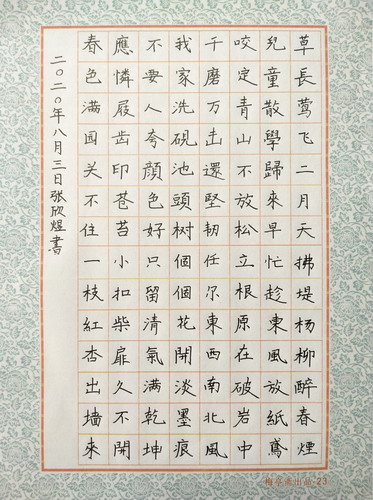 草長莺飞二月天拂堤杨柳醉春煙
兒童散學歸來早忙趁東風放紙鳶
咬定青山不放松立根原在破岩中
千磨万击還堅韧任尔東西南北風
我家洗硯池頭树個個花開淡墨痕
不要人夸顏色好只留清氣满乾坤
應憐屐齿印苍苔小扣柴扉久不開
春色满园关不住一枝紅杏出墙來
二〇二〇年八月三日张欣煜書
出品-23